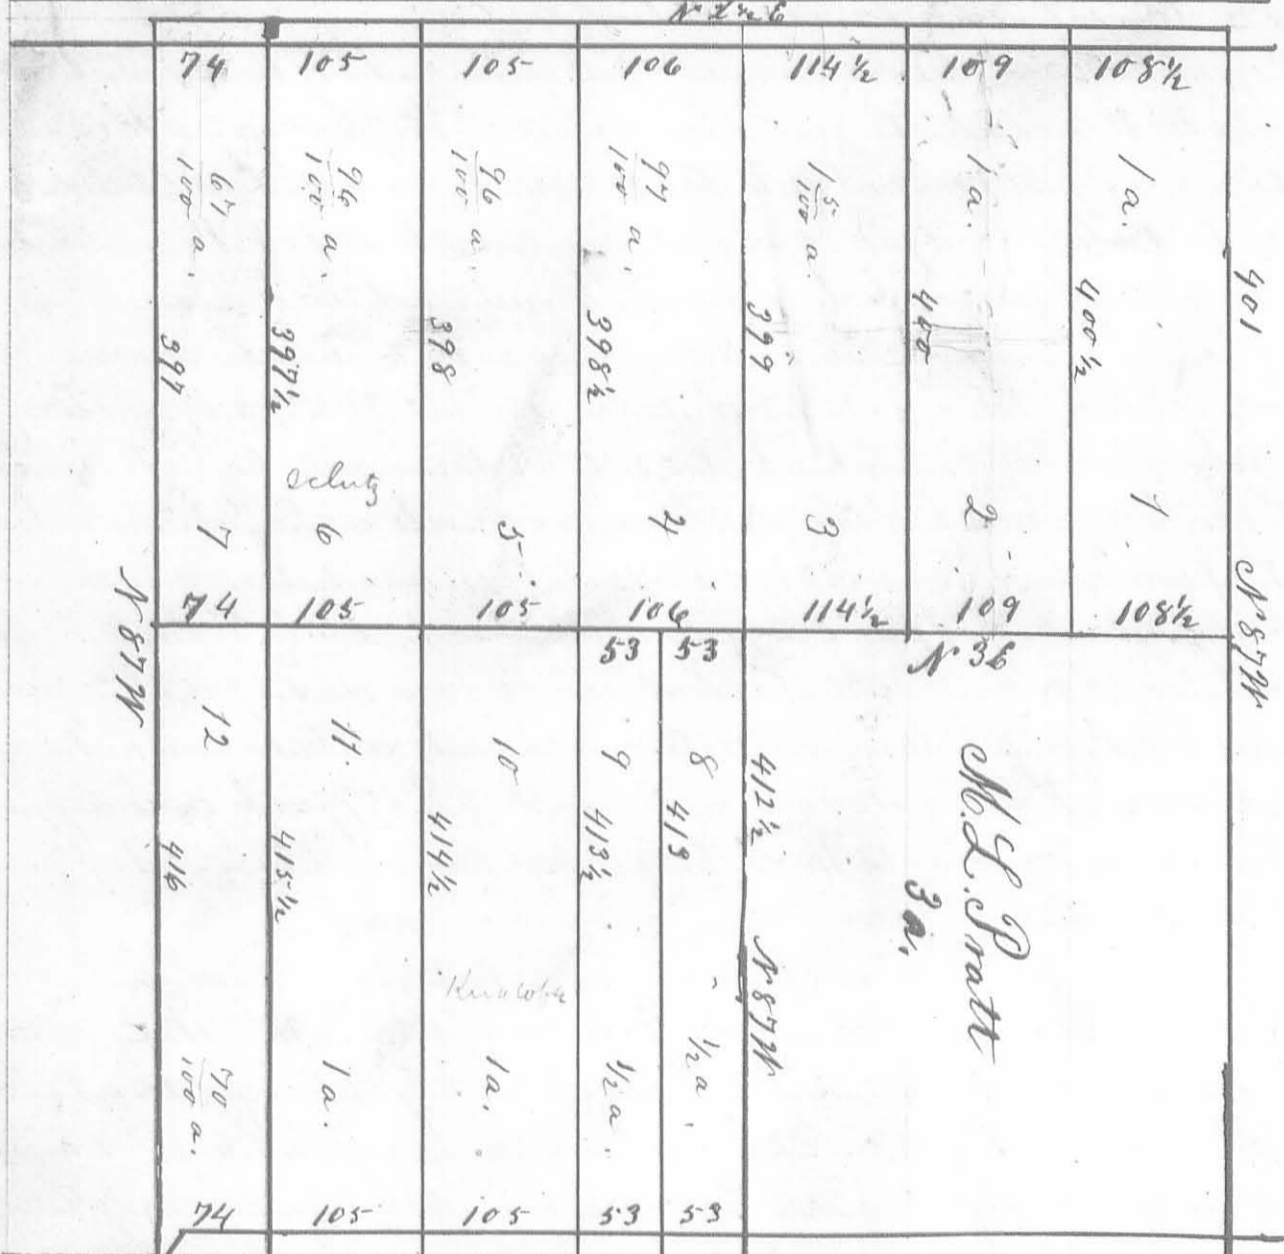 74 105 105 106 114½ 109 108½
67/100 a.
96/100 a.
96/100 a.
97/100 a.
1 5/100 a.
1 a.
1 a.
397
397½
398
398½
399
400
400½
401
7
6
5
4
3
2
1
N 87 W
N 87 W
74 105 105 106 114½ 109 108½
53 53
N 36
12
11
10
9
8
M. L. Pratt
3 a.
416
415½
414½
413½
413
412½
N 87 W
70/100 a.
1 a.
1 a.
½ a.
½ a.
74 105 105 53 53